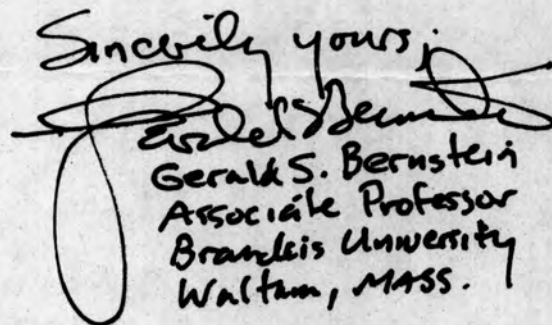 Sincerely yours,
Gerald S Bernstein
Gerald S. Bernstein
Associate Professor
Brandeis University
Waltham, MASS.